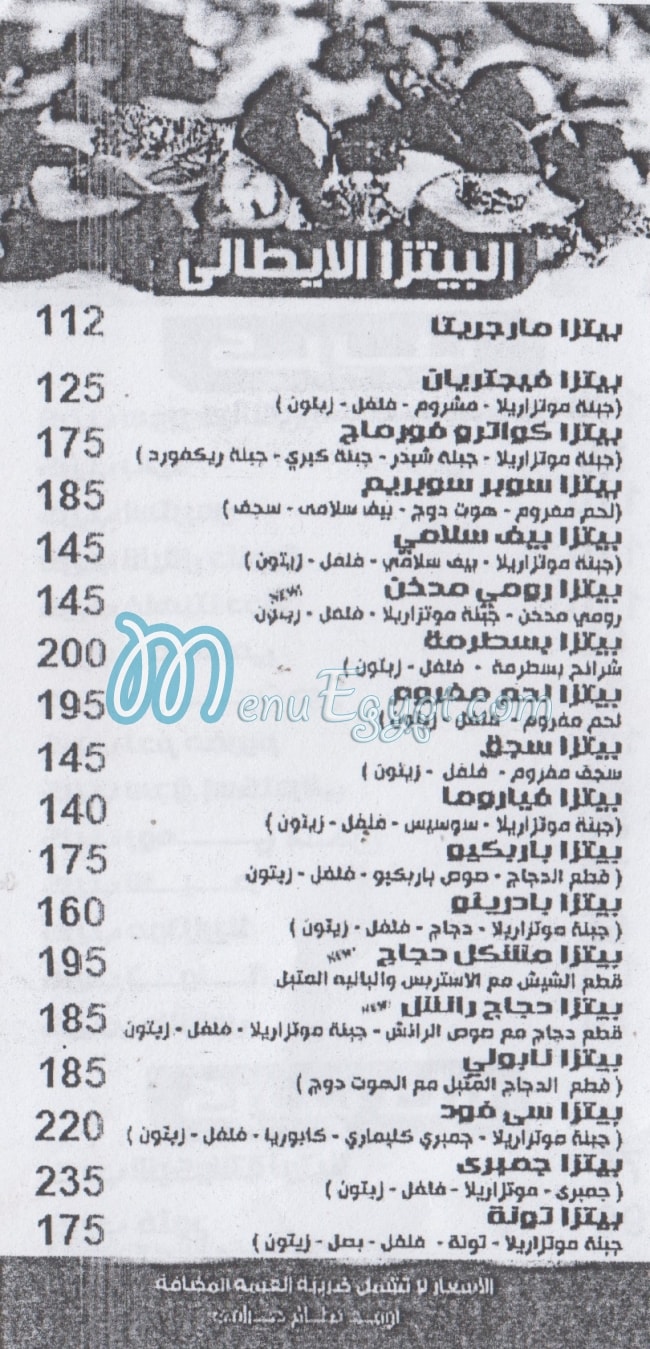 البيتزا الايطالى
بيتزا مارجريتا 112
بيتزا فيجتريان 125
(جبنة موتزاريلا - مشروم - فلفل - زيتون )
بيتزا كواترو فورماج 175
(جبنة موتزاريلا - جبنة شيدر - جبنة كيري - جبنة ريكفورد )
بيتزا سوبر سوبريم 185
(لحم مفروم - هوت دوج - بيف سلامى - سجف )
بيتزا بيف سلامي 145
(جبنة موتزاريلا - بيف سلامي - فلفل - زيتون )
بيتزا رومي مدخن NEW 145
رومي مدخن - جبنة موتزاريلا - فلفل - زيتون
بيتزا بسطرمة 200
شرائح بسطرمة - فلفل - زيتون )
بيتزا لحم مفروم 195
لحم مفروم - فلفل - زيتون )
MenuEgypt.com
بيتزا سجق 145
سجف مفروم - فلفل - زيتون )
بيتزا فياروما 140
(جبنة موتزاريلا - سوسيس - فلفل - زيتون )
بيتزا باربكيو 175
( قطع الدجاج - صوص باربكيو - فلفل - زيتون
بيتزا بادرينو 160
( جبنة موتزاريلا - دجاج - فلفل - زيتون )
بيتزا مشكل دجاج NEW 195
قطع الشيش مع الاستربس والبانيه المتبل
بيتزا دجاج رانش NEW 185
قطع دجاج مع صوص الرانش - جبنة موتزاريلا - فلفل - زيتون
بيتزا نابولي 185
( قطع الدجاج المتبل مع الهوت دوج )
بيتزا سى فود 220
( جبنة موتزاريلا - جمبري كليماري - كابوريا - فلفل - زيتون )
بيتزا جمبرى 235
( جمبرى - موتزاريلا - فلفل - زيتون )
بيتزا تونة 175
جبنة موتزاريلا - تونة - فلفل - بصل - زيتون )
الاسعار لا تشمل ضريبة القيمة المضافة